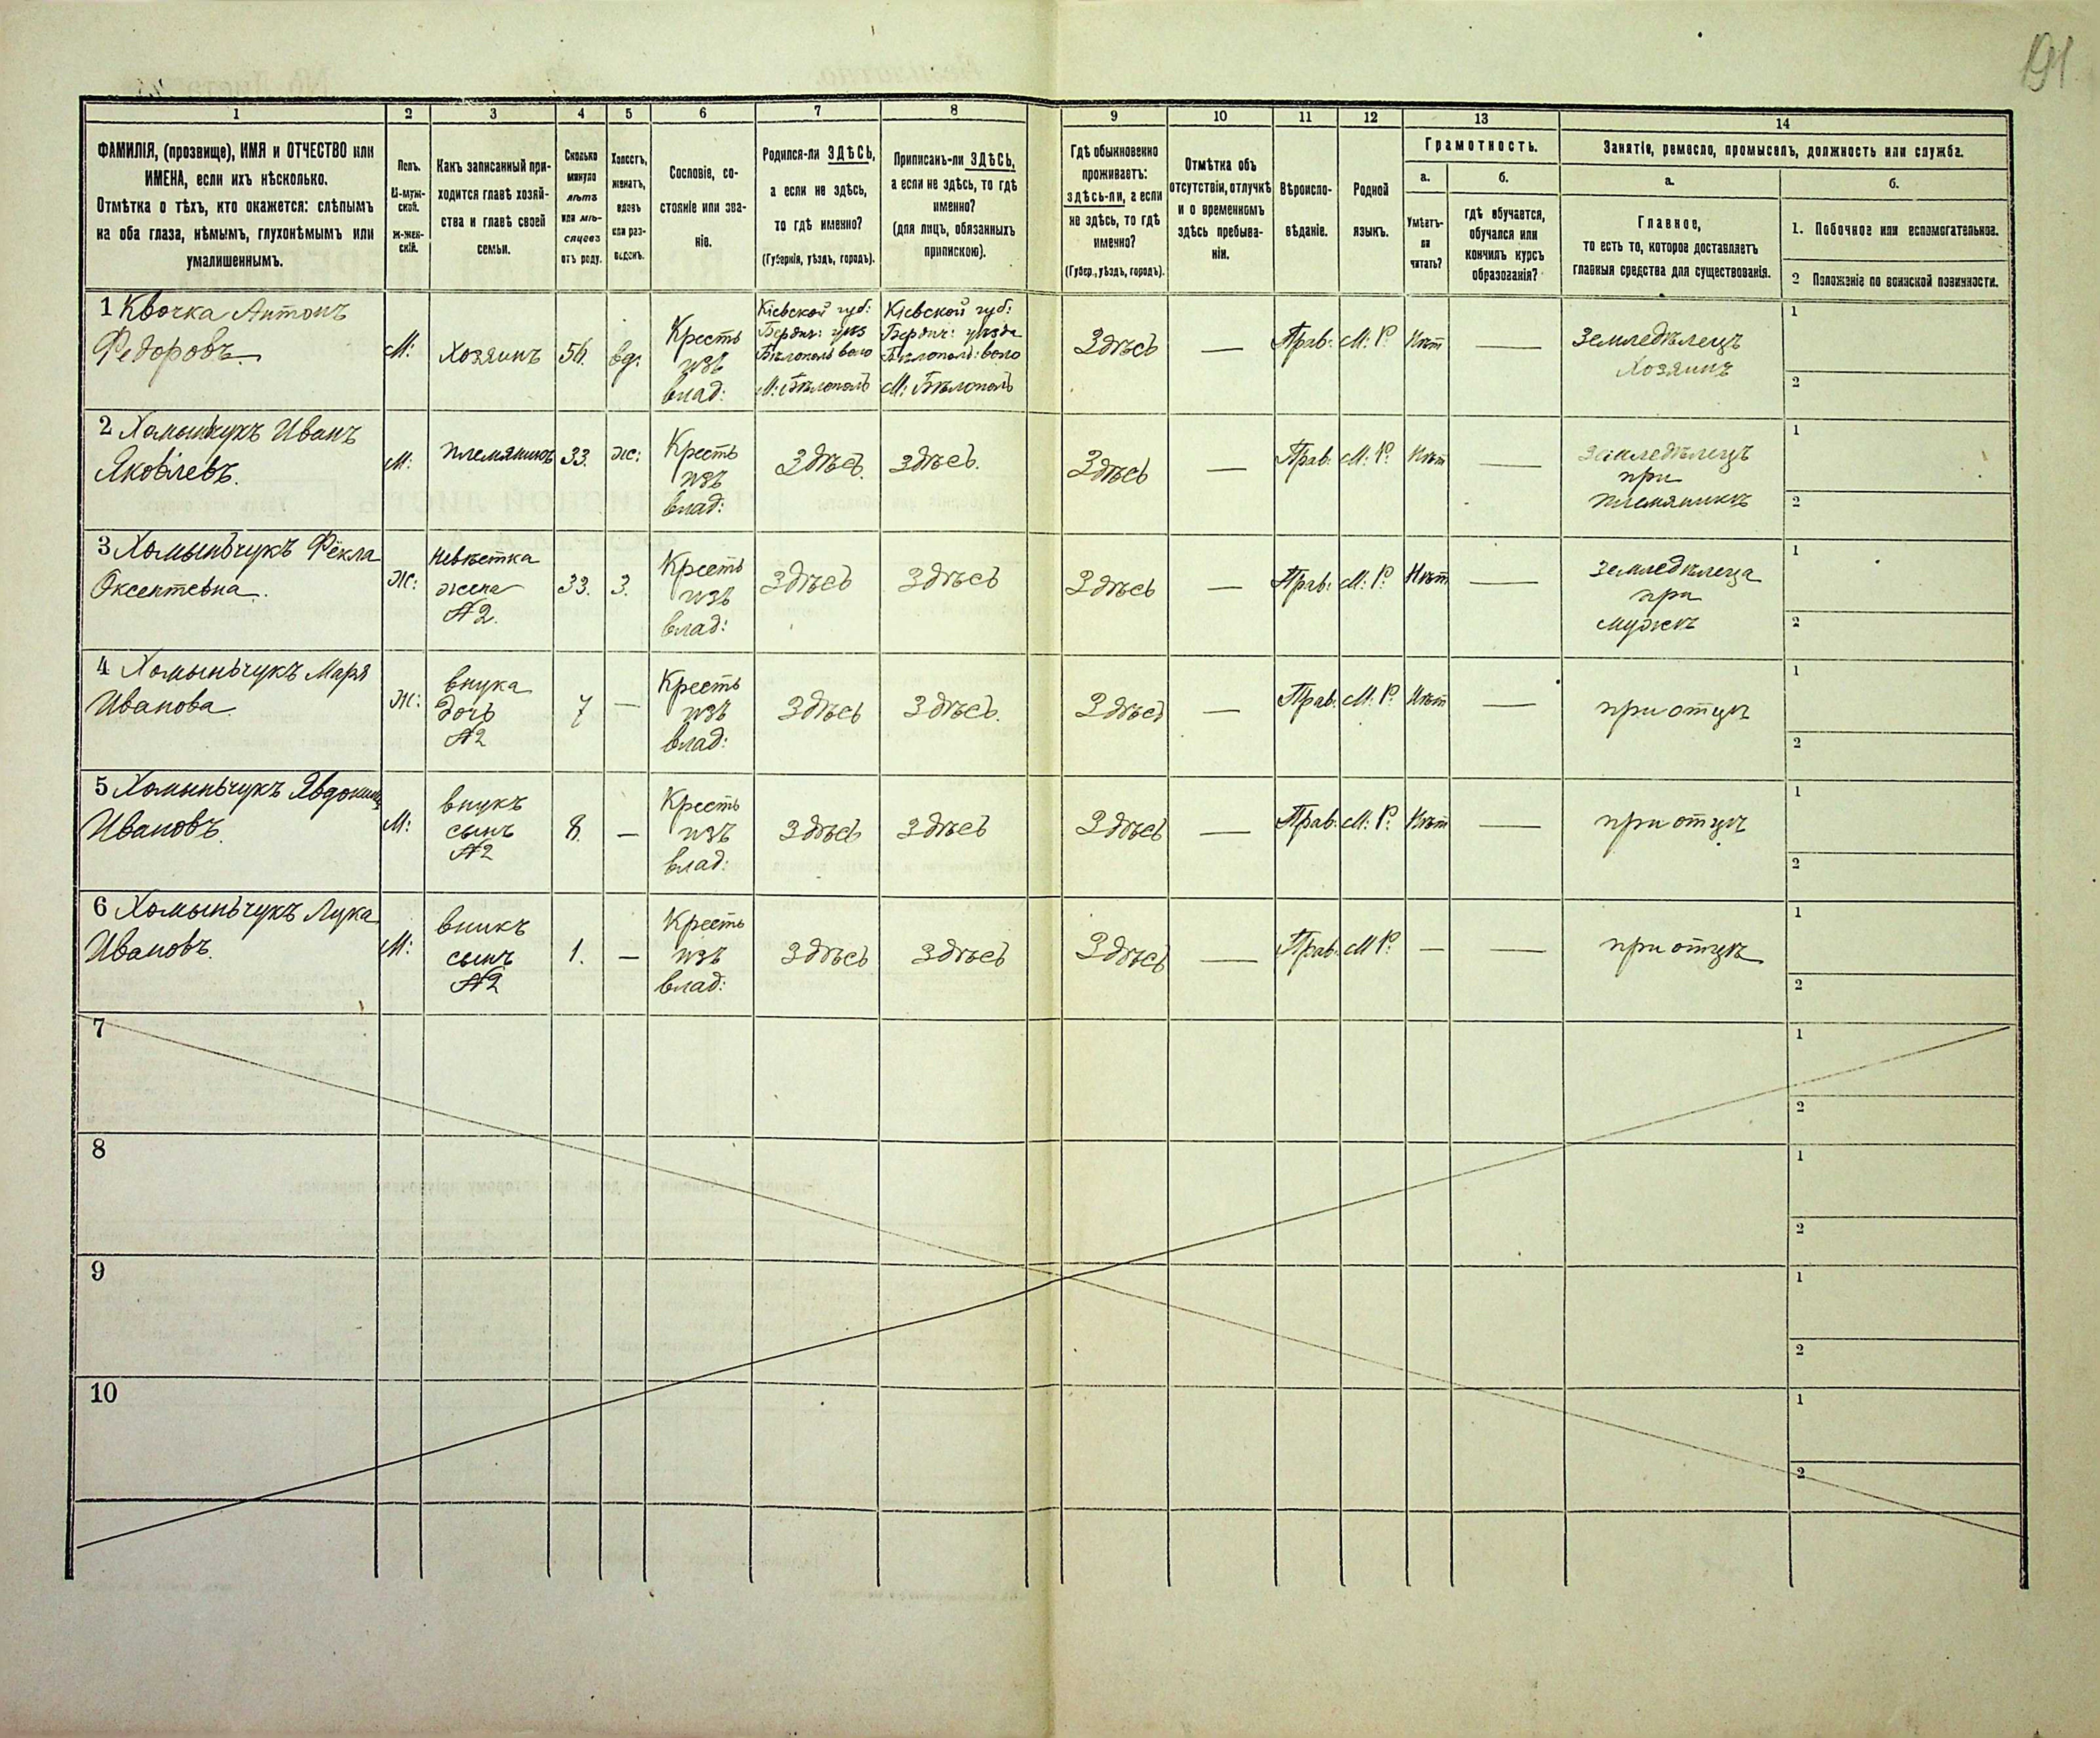 191
1 2 3 4 5 6 7 8 9 10 11 12 13 14
ФАМИЛІЯ, (прозвище), ИМЯ и ОТЧЕСТВО или
ИМЕНА, если ихъ нѣсколько.
Отмѣтка о тѣхъ, кто окажется: слѣпымъ
на оба глаза, нѣмымъ, глухонѣмымъ или
умалишеннымъ.
Полъ.
М-муж-
ской.
Ж-жен-
скій.
Какъ записанный при-
ходится главѣ хозяй-
ства и главѣ своей
семьи.
Сколько
минуло
лѣтъ
или мѣ-
сяцевъ
отъ роду.
Холостъ,
женатъ,
вдовъ
или раз-
веденъ.
Сословіе, со-
стояніе или зва-
ніе.
Родился-ли ЗДѢСЬ,
а если не здѣсь,
то гдѣ именно?
(Губернія, уѣздъ, городъ).
Приписанъ-ли ЗДѢСЬ,
а если не здѣсь, то гдѣ
именно?
(для лицъ, обязанныхъ
припискою).
Гдѣ обыкновенно
проживаетъ:
здѣсь-ли, а если
не здѣсь, то гдѣ
именно?
(Губер., уѣздъ, городъ).
Отмѣтка объ
отсутствіи, отлучкѣ
и о временномъ
здѣсь пребыва-
ніи.
Вѣроиспо-
вѣданіе.
Родной
языкъ.
Грамотность.
а.
Умѣетъ-
ли
читать?
б.
гдѣ обучается,
обучался или
кончилъ курсъ
образованія?
Занятіе, ремесло, промыселъ, должность или служба.
а.
Главное,
то есть то, которое доставляетъ
главныя средства для существованія.
б.
1. Побочное или вспомогательное.
2 Положеніе по воинской повинности.
1 Квочка Антонъ
Федоровъ
М:
Хозяинъ
56.
вд:
Кресть
изъ
влад:
Кіевской губ:
Бердич: уѣз
Бѣлополь воло
М: Бѣлополь
Кіевской губ:
Бердич: уѣзда
Бѣлополь: воло
М: Бѣлополь
Здѣсь
—
Прав:
М: Р:
Нѣт
—
Земледѣлецъ
Хозяинъ
1
2
2 Хомынчукъ Иванъ
Яковлевъ.
М:
племянникъ
33.
ж:
Кресть
изъ
влад:
Здѣсь.
Здѣсь.
Здѣсь
—
Прав:
М: Р:
Нѣт
—
Земледѣлецъ
при
племяникъ
1
2
3 Хомыньчукъ Фёкла
Оксентевна.
Ж:
Невѣстка
жена
№2.
33.
З.
Кресть
изъ
влад:
Здѣсь
Здѣсь
Здѣсь
—
Прав:
М: Р:
Нѣт
—
Земледѣлеца
при
мужѣ
1
2
4 Хомыньчукъ Маря
Иванова.
Ж:
внука
дочь
№2
7
—
Кресть
изъ
влад:
Здѣсь
Здѣсь.
Здѣсь
—
Прав:
М: Р:
Нѣт
—
при отцѣ
1
2
5 Хомыньчукъ
Ивановъ.
М:
внукъ
сынъ
№2
8.
—
Кресть
изъ
влад:
Здѣсь
Здѣсь
Здѣсь
—
Прав:
М: Р:
Нѣт
—
при отцѣ
1
2
6 Хомыньчукъ Лука
Ивановъ.
М:
вникъ
сынъ
№2
1.
—
Кресть
изъ
влад:
Здѣсь
Здѣсь
Здѣсь
—
Прав:
М Р:
—
—
при отцѣ
1
2
7
1
2
8
1
2
9
1
2
10
1
2